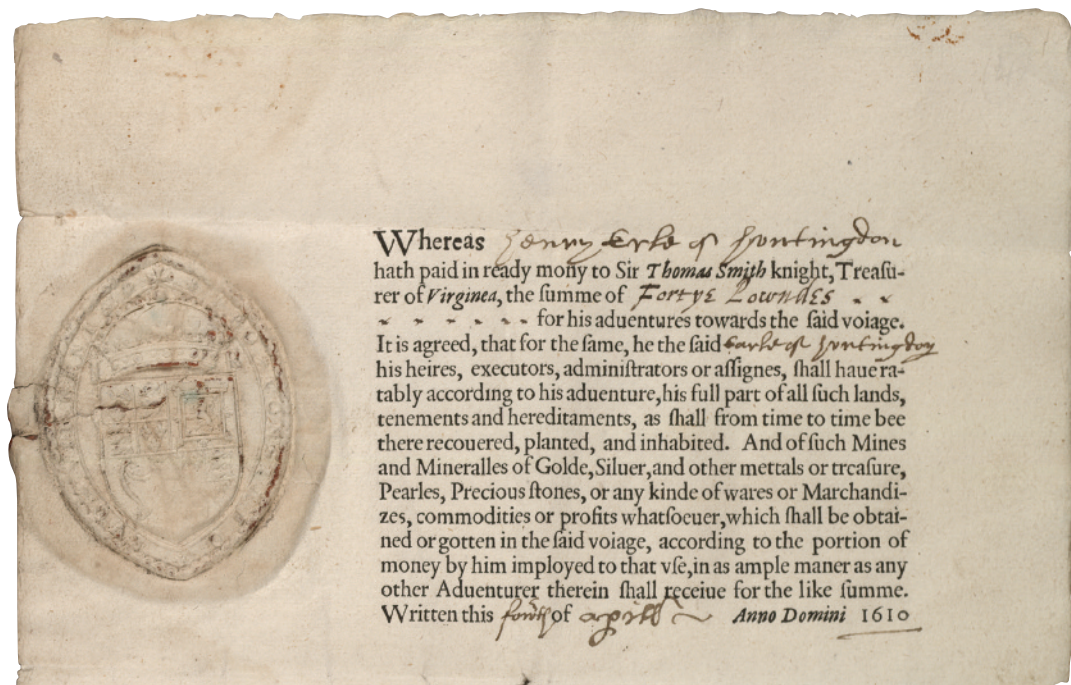 Whereas henry Erle of Huntingdon
hath paid in ready mony to Sir Thomas Smith knight, Treaſu-
rer of Virginea, the ſumme of Fortye Powndes - -
- - - - - - for his aduentures towards the ſaid voiage.
It is agreed, that for the ſame, he the ſaid Earle of Huntingdon
his heires, executors, adminiſtrators or aſſignes, ſhall haue ra-
tably according to his aduenture, his full part of all ſuch lands,
tenements and hereditaments, as ſhall from time to time bee
there recouered, planted, and inhabited. And of ſuch Mines
and Mineralles of Golde, Siluer, and other mettals or treaſure,
Pearles, Precious ſtones, or any kinde of wares or Marchandi-
zes, commodities or profits whatſoeuer, which ſhall be obtai-
ned or gotten in the ſaid voiage, according to the portion of
money by him imployed to that vſe, in as ample maner as any
other Aduenturer therein ſhall receiue for the like ſumme.
Written this fowrth of aprill Anno Domini 1610